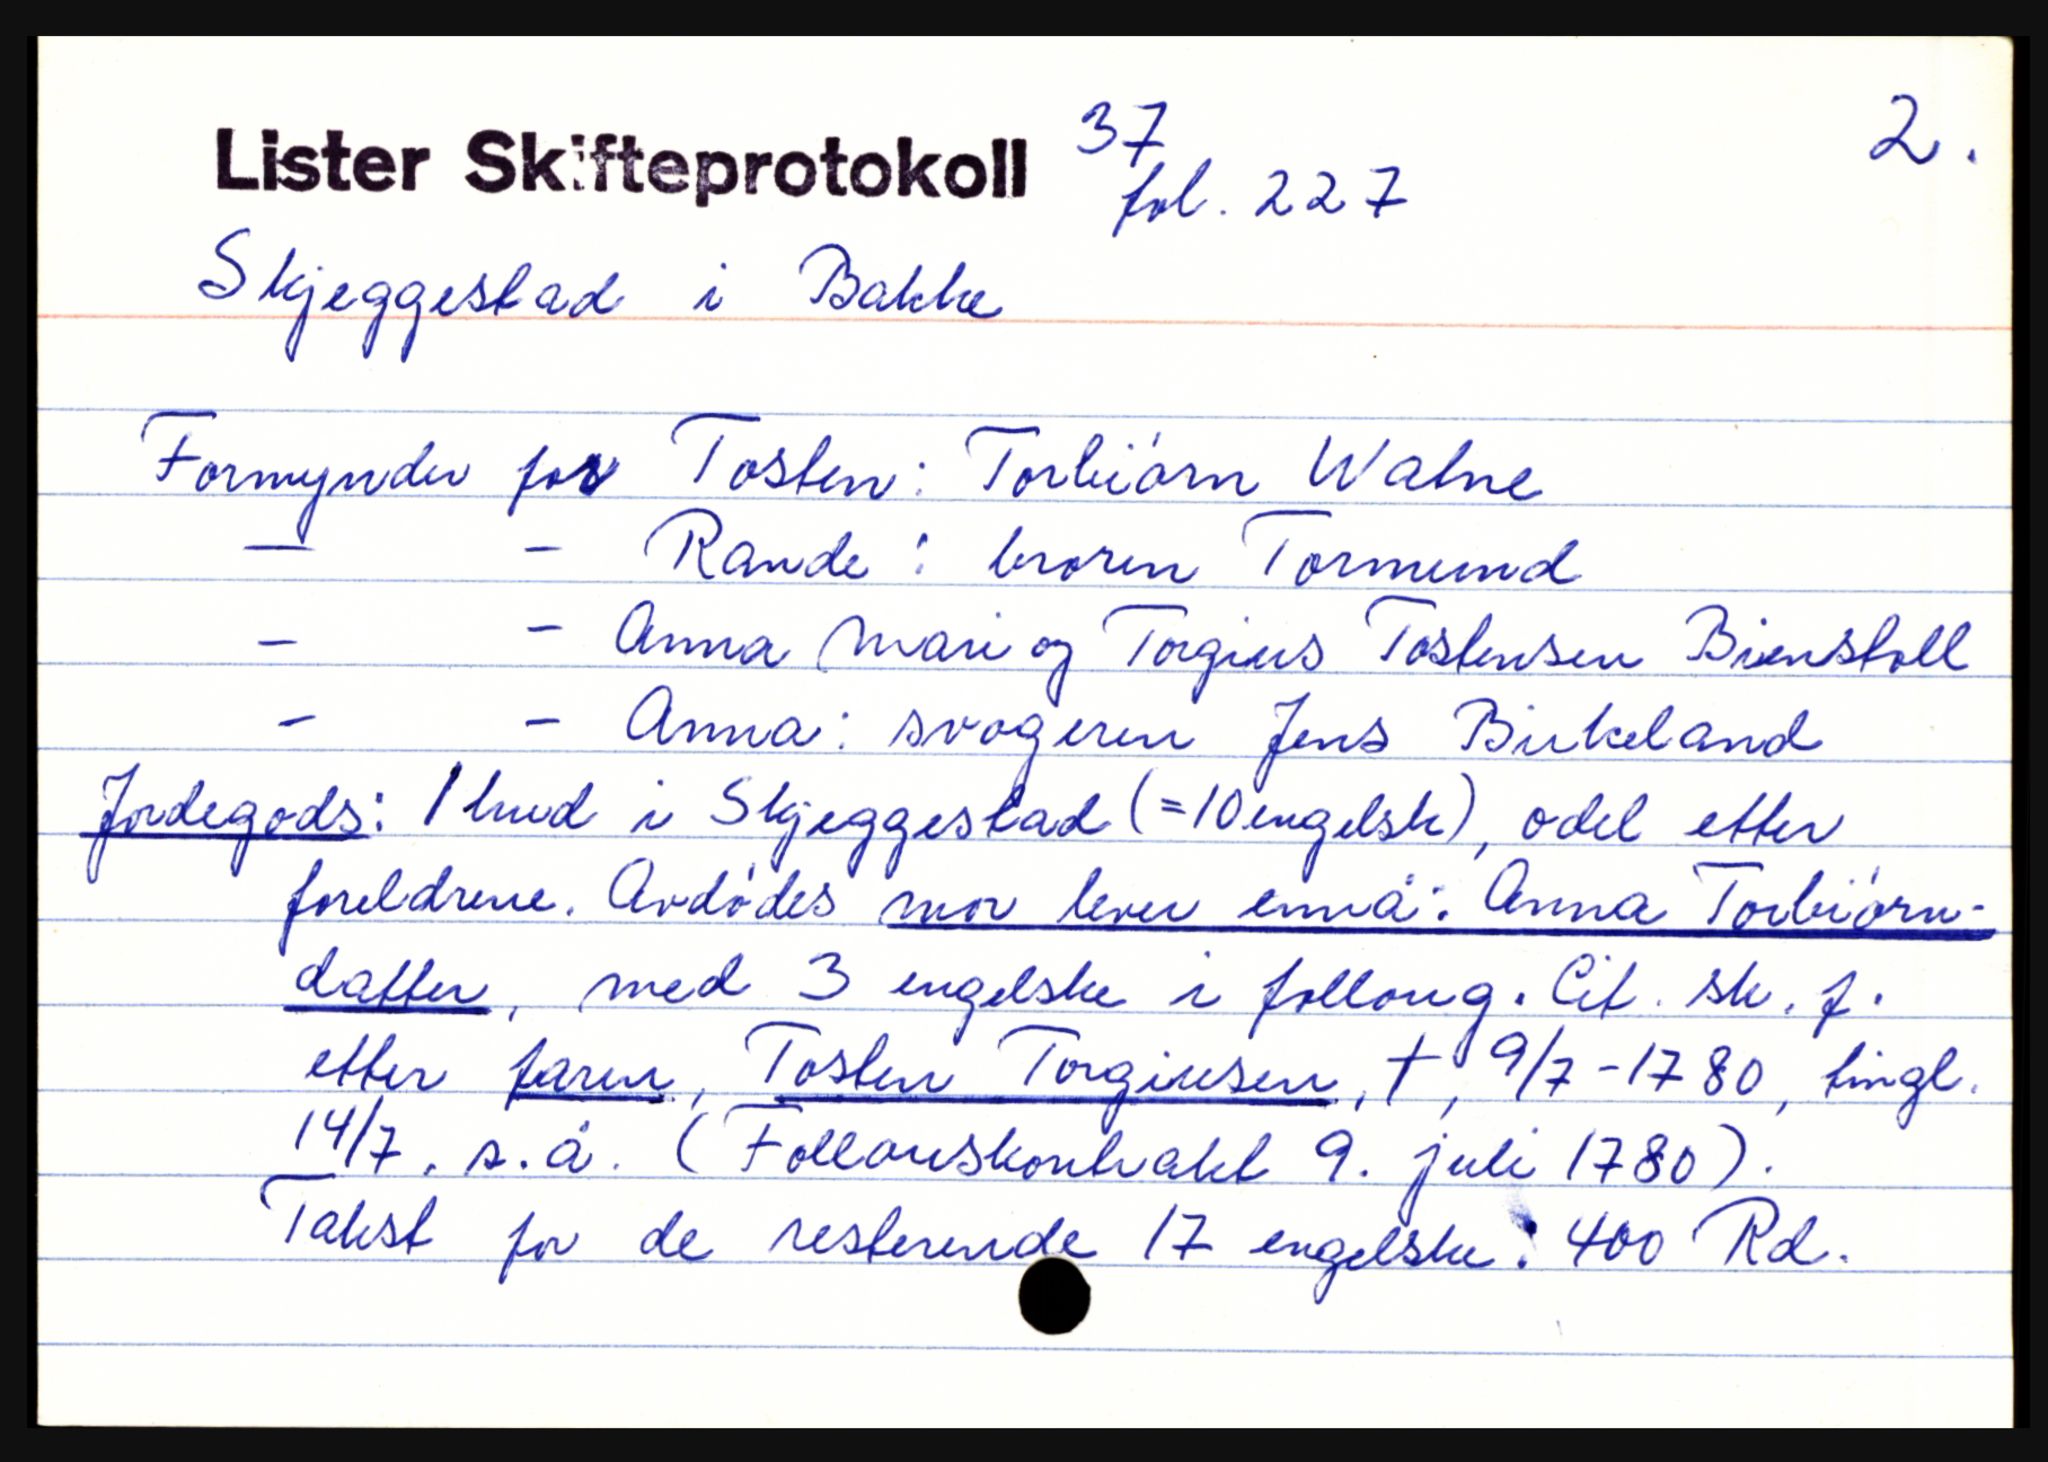 Lister Skifteprotokoll 37 2.
fol. 227
Skjeggestad i Bakke
Formynder for Tosten: Torbiørn Watne
— – Rande: broren Tormund
– – Anna Mari og Torgius Tostensen Bienstoll
– – Anna: svogeren Jens Birkeland
Jordegods: 1 hud i Skjeggestad (=10 engelsk), odel etter
foreldrene. Avdødes mor lever ennå: Anna Torbiørn-
datter, med 3 engelske i follaug. Cit. sk. f.
etter faren, Tosten Torgiusen, †, 9/7-1780, tingl.
14/7. s.å. (Follauskontrakt 9. juli 1780).
Takst for de resterende 17 engelske: 400 Rd.